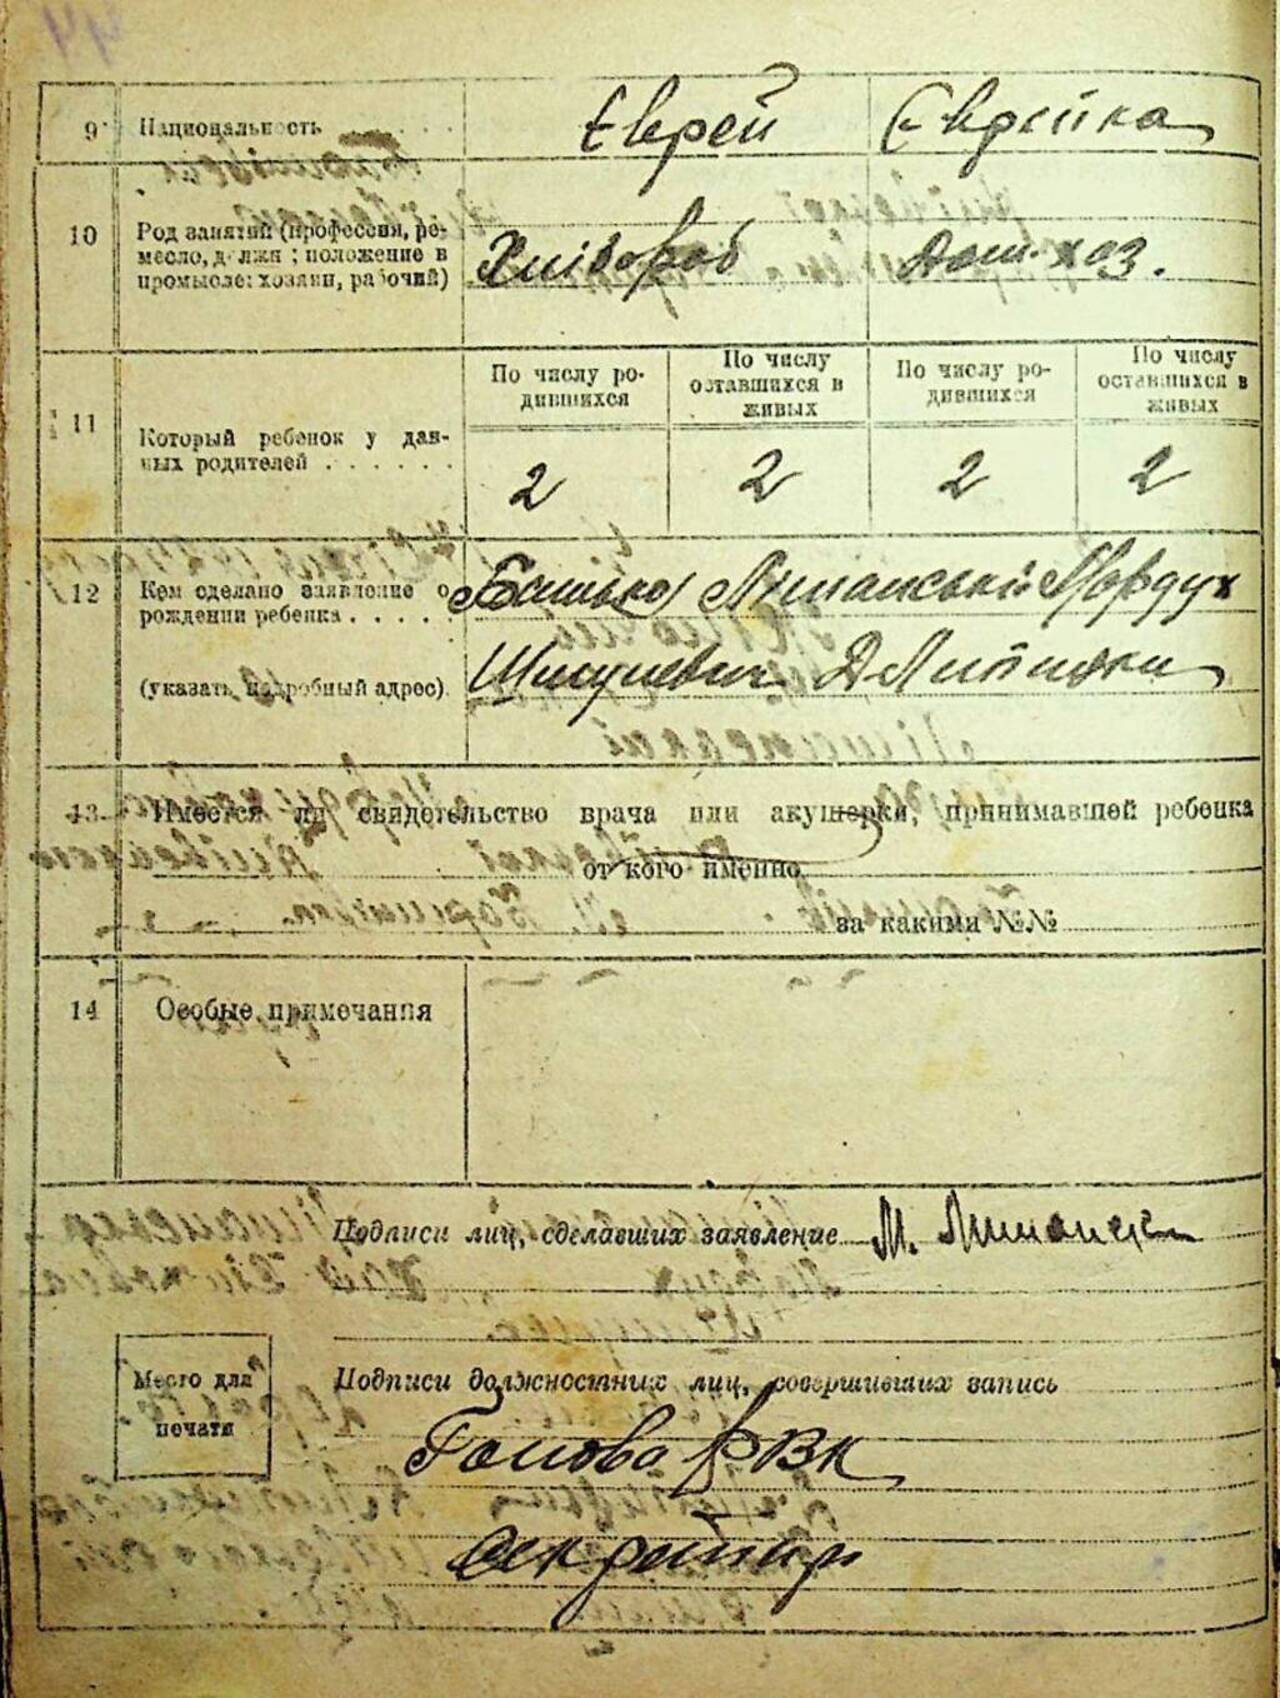 9 Национальность . . . Єврей Єврейка
10 Род занятий (профессия, ре-
месло, должн; положение в
промысле: хозяин, рабочий)
Хлібороб Дом. хоз.
11 Который ребенок у дан-
ных родителей . . . . . .
По числу ро-
дившихся
По числу
оставшихся в
живых
По числу ро-
дившихся
По числу
оставшихся в
живых
2 2 2 2
12 Кем сделано заявление о
рождении ребенка . . . . .
(указать подробный адрес)
Батько Ліманський Мордух
Шмулевич
13 Имеется ли свидетельство врача или акушерки, принимавшей ребенка
от кого именно
за какими №№
14 Особые примечания
Подписи лиц, сделавших заявление М.
Место для
печати
Подписи должностных лиц, совершивших запись
Голова РВК
Секретар